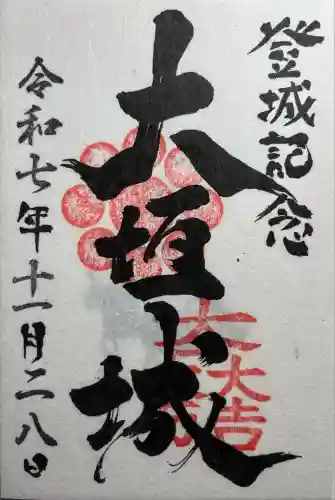 登城記念
大垣城
令和七年十一月二八日
大一大万大吉